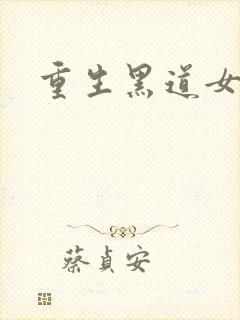 重生黑道女
蔡貞安